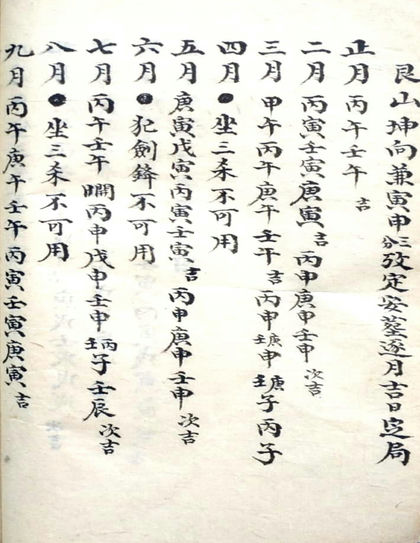 艮山坤向兼寅申三分攷定安塟逐月吉日定局
正月 丙午壬午 吉
二月 丙寅壬寅庚寅 吉 丙申庚申壬申 次吉
三月 甲午丙午庚午壬午 吉 丙申庚壬申庚壬子丙子
四月 ●坐三杀不可用
五月 庚寅戊寅丙寅壬寅 吉 丙申庚申壬申 次吉
六月 ●犯劍鋒不可用
七月 丙午壬午 丙申戊申壬申丙壬子壬辰 次吉
八月 ●坐三杀不可用
九月 丙午庚午壬午丙寅壬寅庚寅 吉